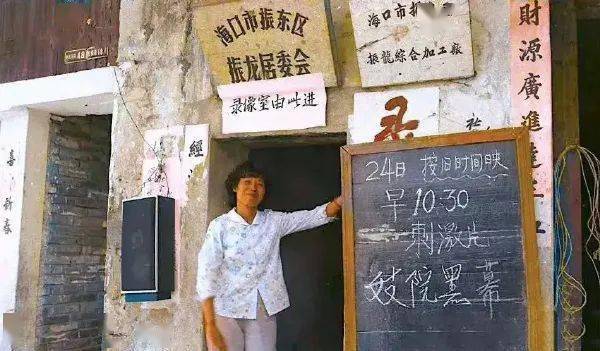 海口市振东区
振龙居委会
录像室由此进
海口市振
振龍綜合加工廠
財源廣進達三江
录
经
喜
新春
24日 按旧时间映
早10:30
刺激片
妓院黑幕